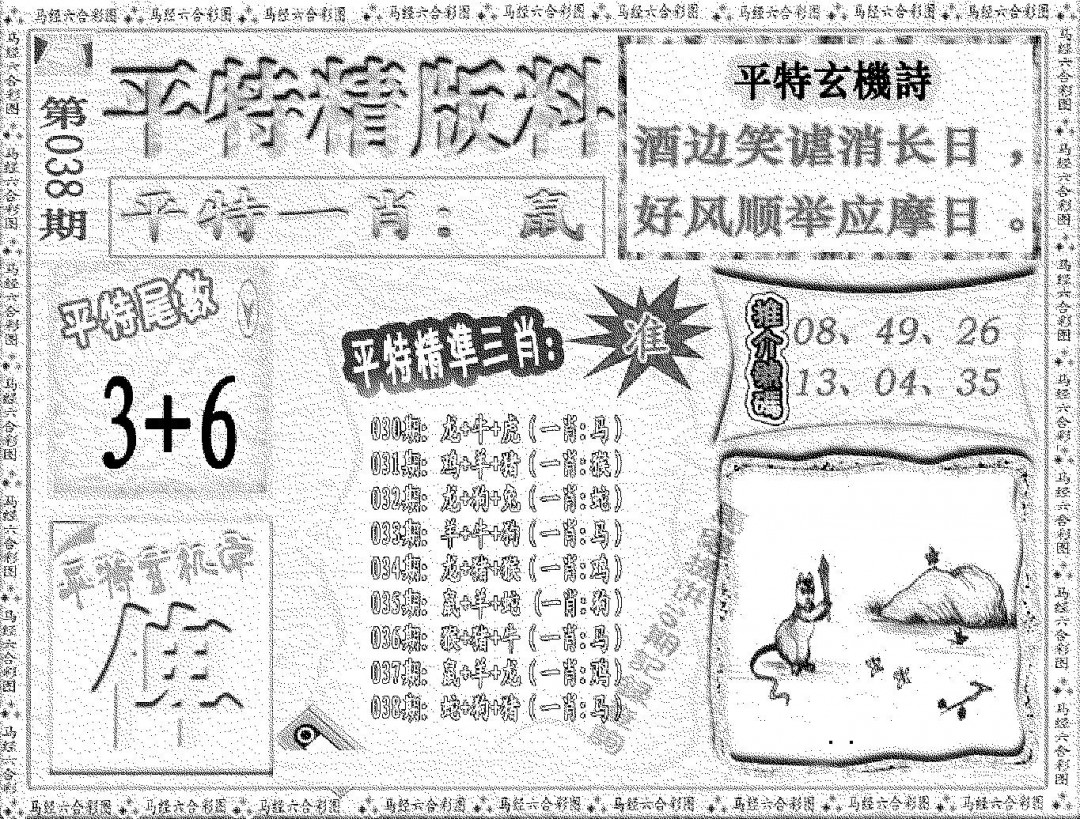 马经六合彩图 马经六合彩图 马经六合彩图 马经六合彩图 马经六合彩图 马经六合彩图 马经六合彩图 马经六合彩图 马经六合彩图
第038期
平特精版料
平特一肖：鼠
平特玄機詩
酒边笑谑消长日，
好风顺举应摩日。
平特尾数
3+6
平特精準三肖：
准
推介號碼
08、49、26
13、04、35
030期：龙+牛+虎（一肖:马）
031期：鸡+羊+猪（一肖:猴）
032期：龙+狗+兔（一肖:蛇）
033期：羊+牛+狗（一肖:马）
034期：龙+猪+猴（一肖:鸡）
035期：鼠+羊+蛇（一肖:狗）
036期：猴+猪+牛（一肖:马）
037期：鼠+羊+龙（一肖:鸡）
038期：蛇+狗+猪（一肖:马）
平特玄机字
马经六合彩图 马经六合彩图 马经六合彩图 马经六合彩图 马经六合彩图 马经六合彩图 马经六合彩图 马经六合彩图 马经六合彩图